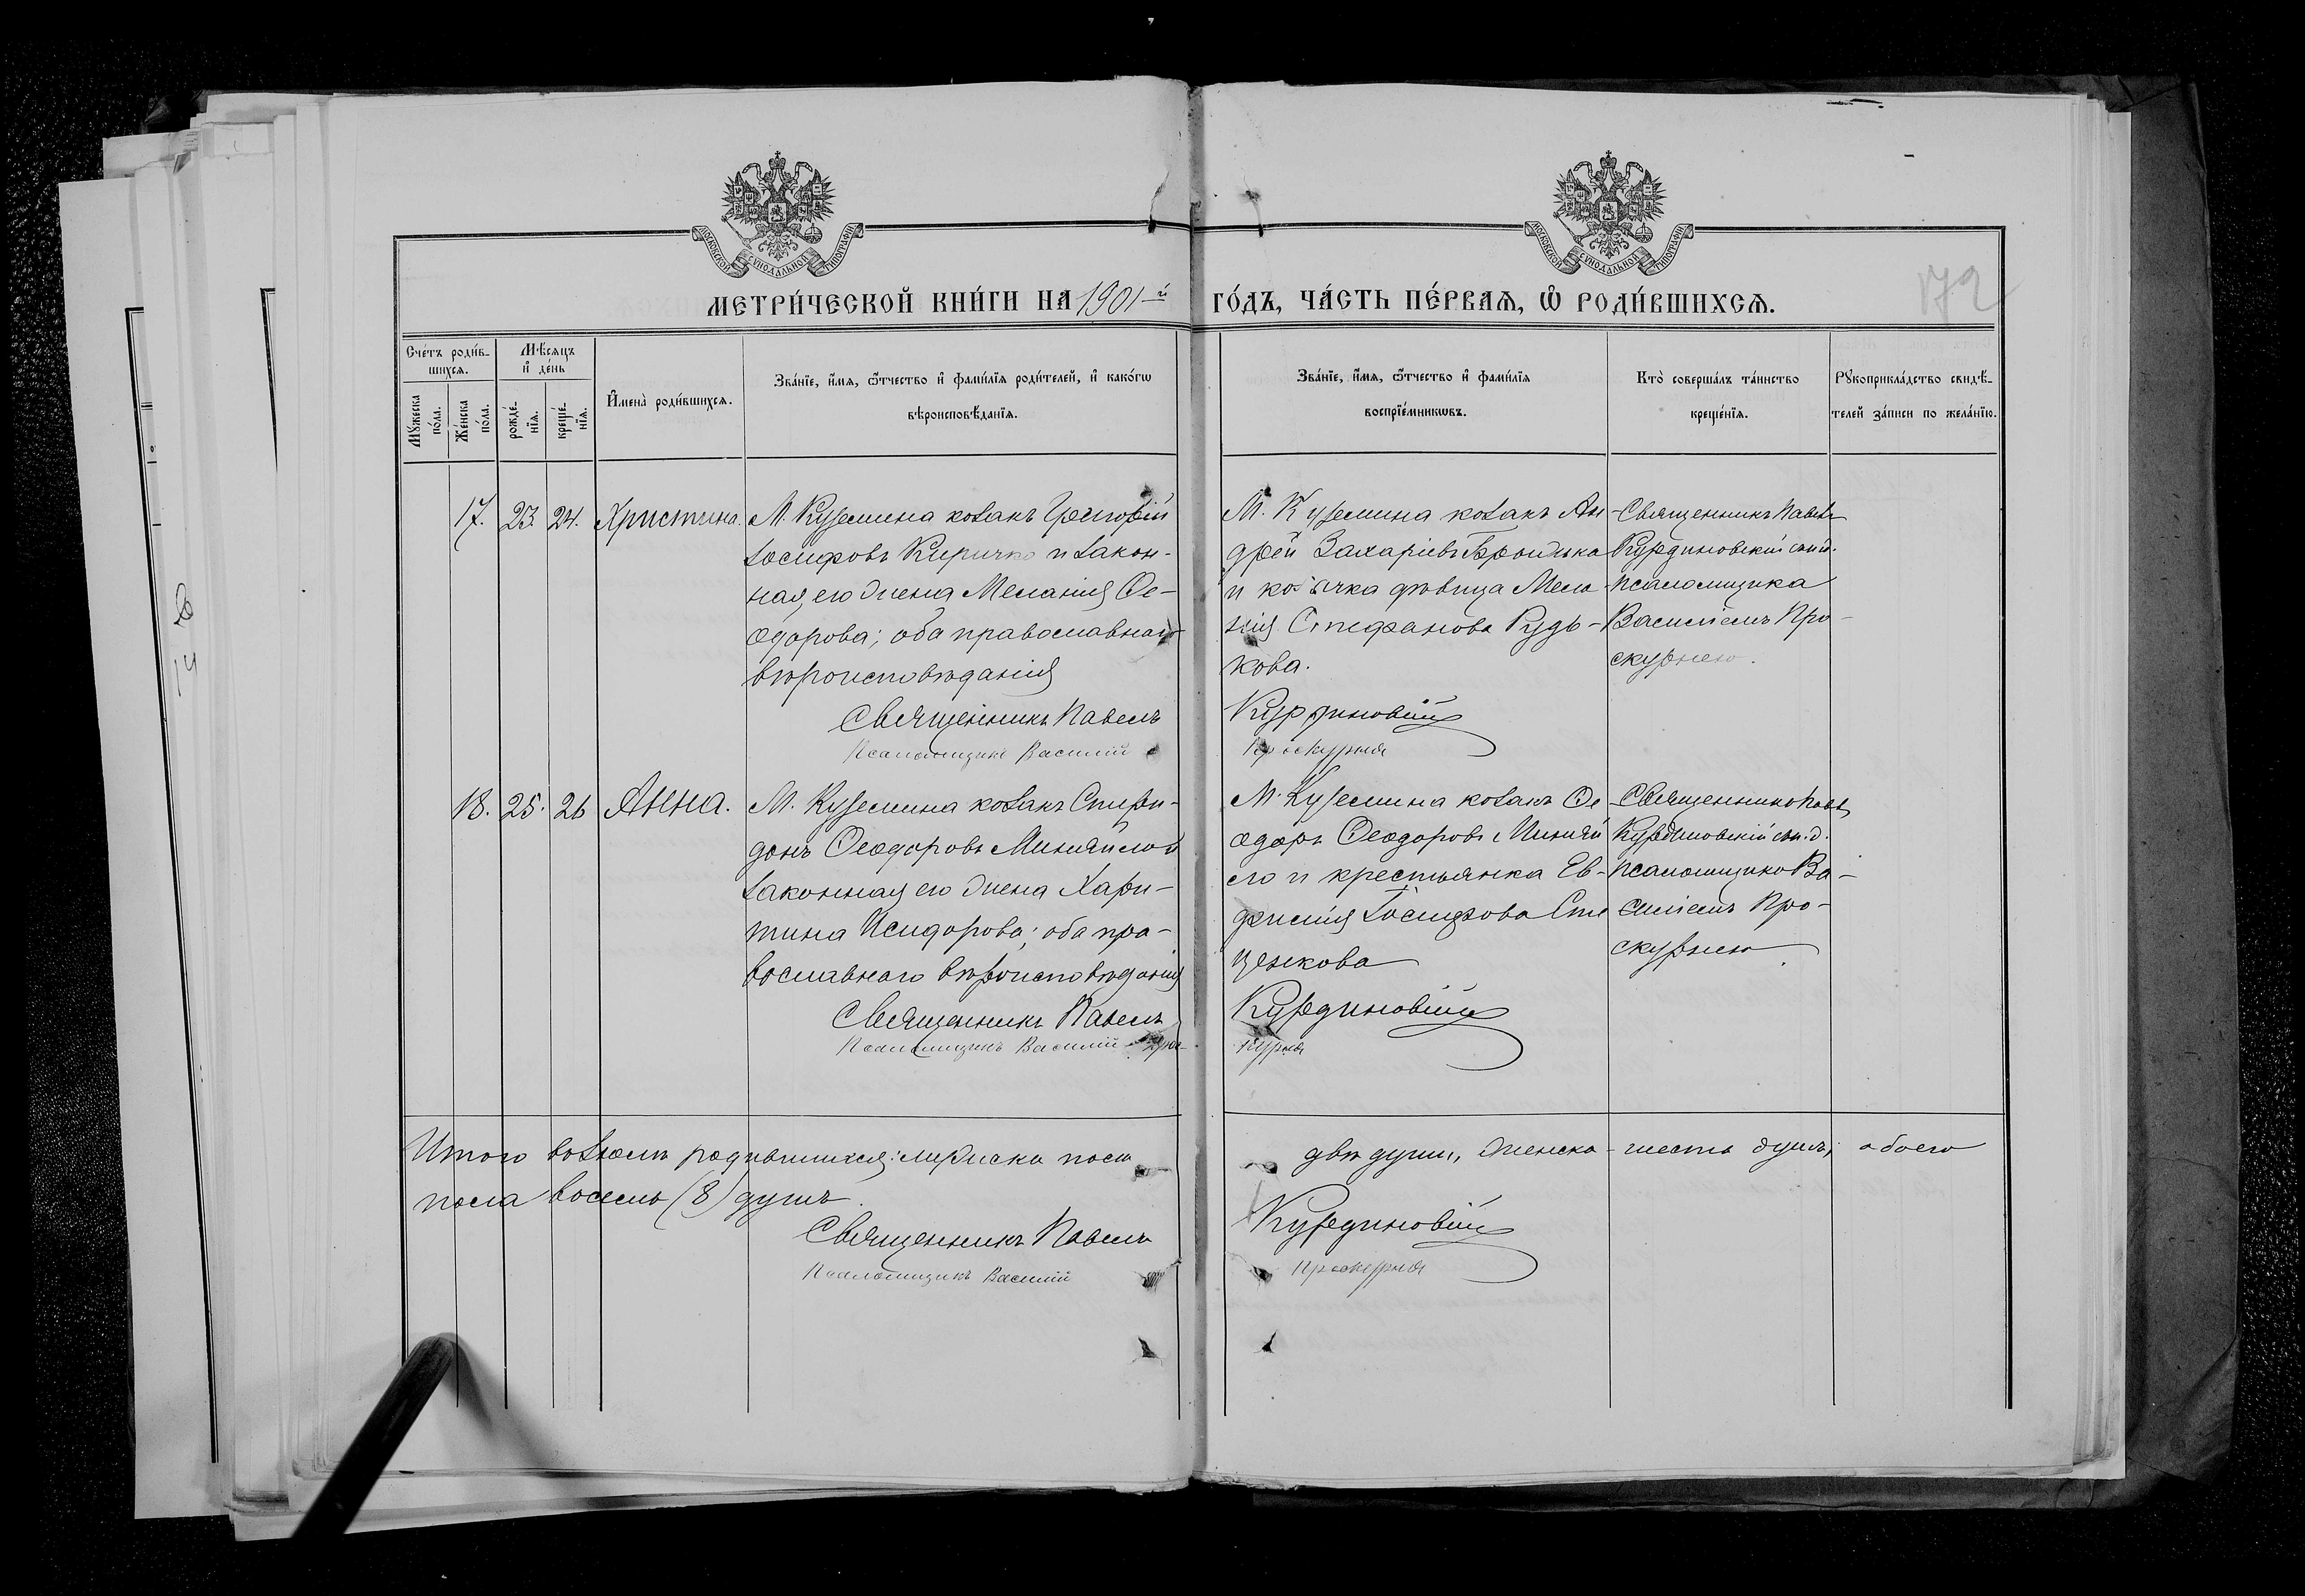 МОСКОВСКОЙ СУНОДАЛЬНОЙ ТИПОГРАФІИ
МОСКОВСКОЙ СУНОДАЛЬНОЙ ТИПОГРАФІИ
МЕТРИ́ЧЕСКОЙ КНИ́ГИ НА 1901-й ГО́ДЪ, ЧА́СТЬ ПЕ́РВАѦ, Ѡ҆ РОДИ́ВШИХСѦ.
172
Сче́тъ роди́в-
шихсѧ.
Мꙋ́жеска по́ла.
Же́нска по́ла.
Мѣ́сѧцъ и҆ де́нь
рожде́-нїѧ.
креще́-нїѧ.
И҆мена̀ роди́вшихсѧ.
Зва́нїе, и҆́мѧ, ѻ҆́тчество и҆ фами́лїѧ роди́телей, и҆ како́гѡ
вѣроисповѣ́данїѧ.
Зва́нїе, и҆́мѧ, ѻ҆́тчество и҆ фами́лїѧ
воспрїе́мникѡвъ.
Кто̀ соверша́лъ та́инство
креще́нїѧ.
Рꙋкоприкла́дство свидѣ́-
телей за́писи по жела́нїю.
17. 23. 24. Христина.
М. Куземина козакъ Григорій
Іосифовъ Киричко и закон-
ная его жена Меланія Ѳе-
одорова; оба православнаго
вѣроисповѣданія
Священникъ Павелъ
Псаломщикъ Василій
М. Куземина козакъ Ан-
дрей Захаріевъ
и козачка дѣвица Мела-
нія Стефанова Рудь-
кова.
Курдиновскій
Проскурня
Священникъ Павелъ
Курдиновскій съ и. д.
псаломщика
Василіемъ Про-
скурнею.
18. 25. 26 Анна.
М. Куземина козакъ Спири-
донъ Ѳеодоровъ
законная его жена Хари-
тина Исидорова; оба пра-
вославнаго вѣроисповѣданія
Священникъ Павелъ
Псаломщикъ Василій Прос-
М. Куземина козакъ Ѳе
одоръ Ѳеодоровъ Миняй
ло и крестьянка Ев-
фимія Іосифова Сте
ценкова
Курдиновскій
курня
Священникъ Павелъ
Курдиновскій съ и. д.
псаломщика Ва-
силіемъ Про-
скурнею
Итого всѣхъ родившихся: мужска пола двѣ души, женска - шесть душъ, обоего
пола восемь (8) душъ.
Священникъ Павелъ Курдиновскій
Псаломщикъ Василій Проскурня